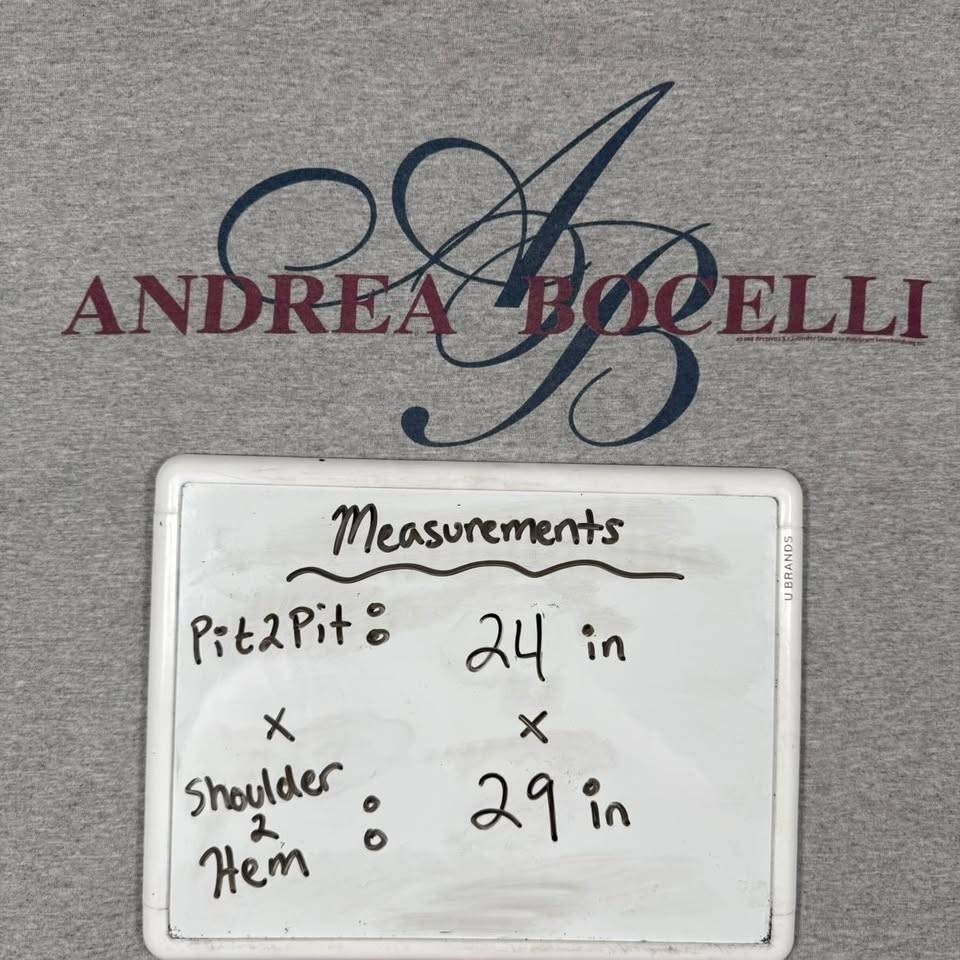 AB
ANDREA BOCELLI
Measurements
Pit2Pit: 24 in
x x
Shoulder
2
Hem : 29 in
U BRANDS